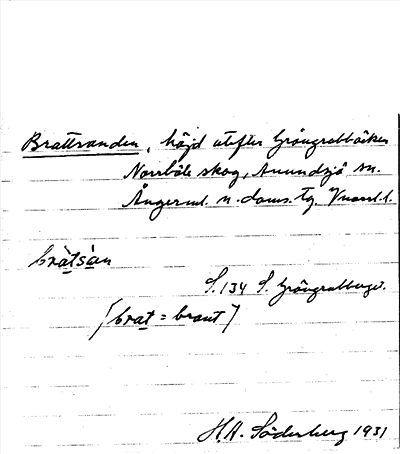 Brattsanden, höjd utefter Gröngrubbäcken
Norrböle skog, Anundsjö sn.
Ångerml. n. doms. tg. Vnorrl. l.
bràtsàn
S. 134 S. Gröngrubberget.
[brat = brant]
H.A. Söderberg 1931